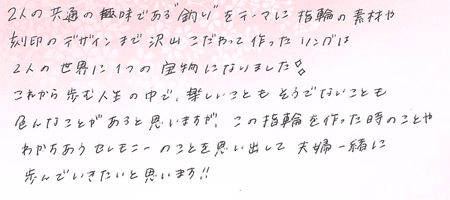 2人の共通の趣味である"釣り"をテーマに指輪の素材や
刻印のデザインまで沢山こだわって作ったリングは
2人の世界に1つの宝物になりました◇
これから歩む人生の中で、楽しいこともそうでないことも
色んなことがあると思いますが、この指輪を作った時のことや
わかちあうセレモニーのことを思い出して夫婦一緒に
歩んでいきたいと思います!!